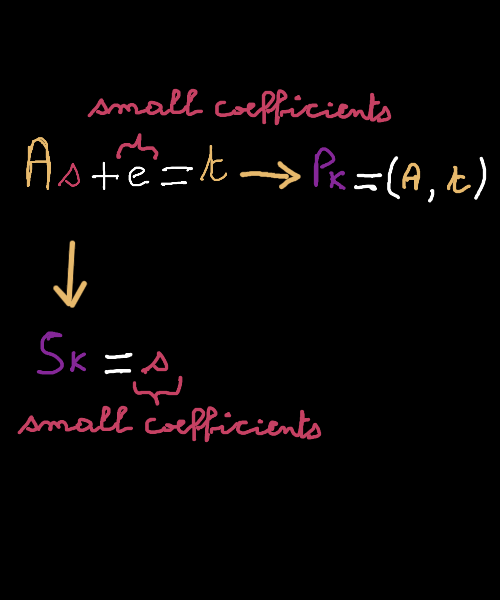 small coefficients
As + e = t → Pk = (A, t)
↓
Sk = s
small coefficients